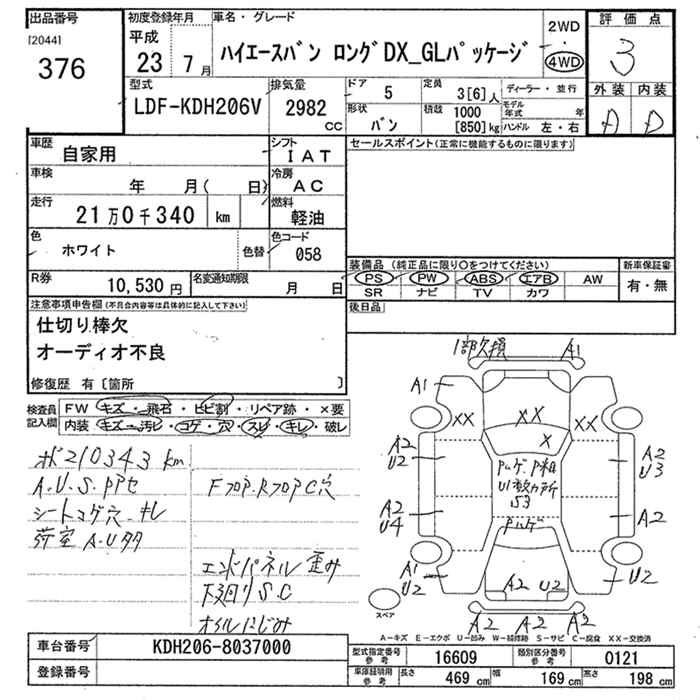 出品番号 初度登録年月 車名・グレード 評価点
[2044]
376
平成
23 7月
ハイエースバン ロングDX_GLパッケージ
2WD
・
4WD
3
型式 排気量 ドア 5 定員 3[6]人 ディーラー・並行 外装 内装
LDF-KDH206V 2982 CC
形状 バン 積載 1000 [850]kg
モデル年式 年
ハンドル 左・右
A D
車歴 自家用 シフト IAT
セールスポイント(正常に機能するものに限ります)
車検 年 月( 日) 冷房 AC
走行 21万0千340 km 燃料 軽油
色 ホワイト 色替 色コード 058
装備品 (純正品に限り○をつけてください) 新車保証書
PS PW ABS エアB AW 有・無
SR ナビ TV カワ
R券 10,530円 名変通知期限 月 日
後日品
注意事項申告欄(不具合内容等は具体的に記入して下さい)
仕切り棒欠
オーディオ不良
修復歴 有〔箇所 〕
検査員記入欄
FW キズ・飛石・ヒビ割・リペア跡・×要
内装 キズ・汚レ・コゲ・穴・スレ・キレ・破レ
ボ210343km
A.U.S.PPセ
シートコゲ穴.キレ
荷室A.Uタタ
FフロアRフロアC穴
エンドパネル歪み
下廻りS.C
オイルにじみ
1部欠損 A1
A1
XX XX XX
X
A2
U2
A2
U3
U1数カ所
A2
U4
A2
A1
U2
A2 U2
U2
A2 A2 A2
スペア
A-キズ E-エクボ U-凹み W-補修跡 S-サビ C-腐食 XX-交換済
車台番号 KDH206-8037000
登録番号
型式指定番号 参考 16609 類別区分番号 参考 0121
車庫証明用 参考 長さ 469cm 幅 169cm 高さ 198cm